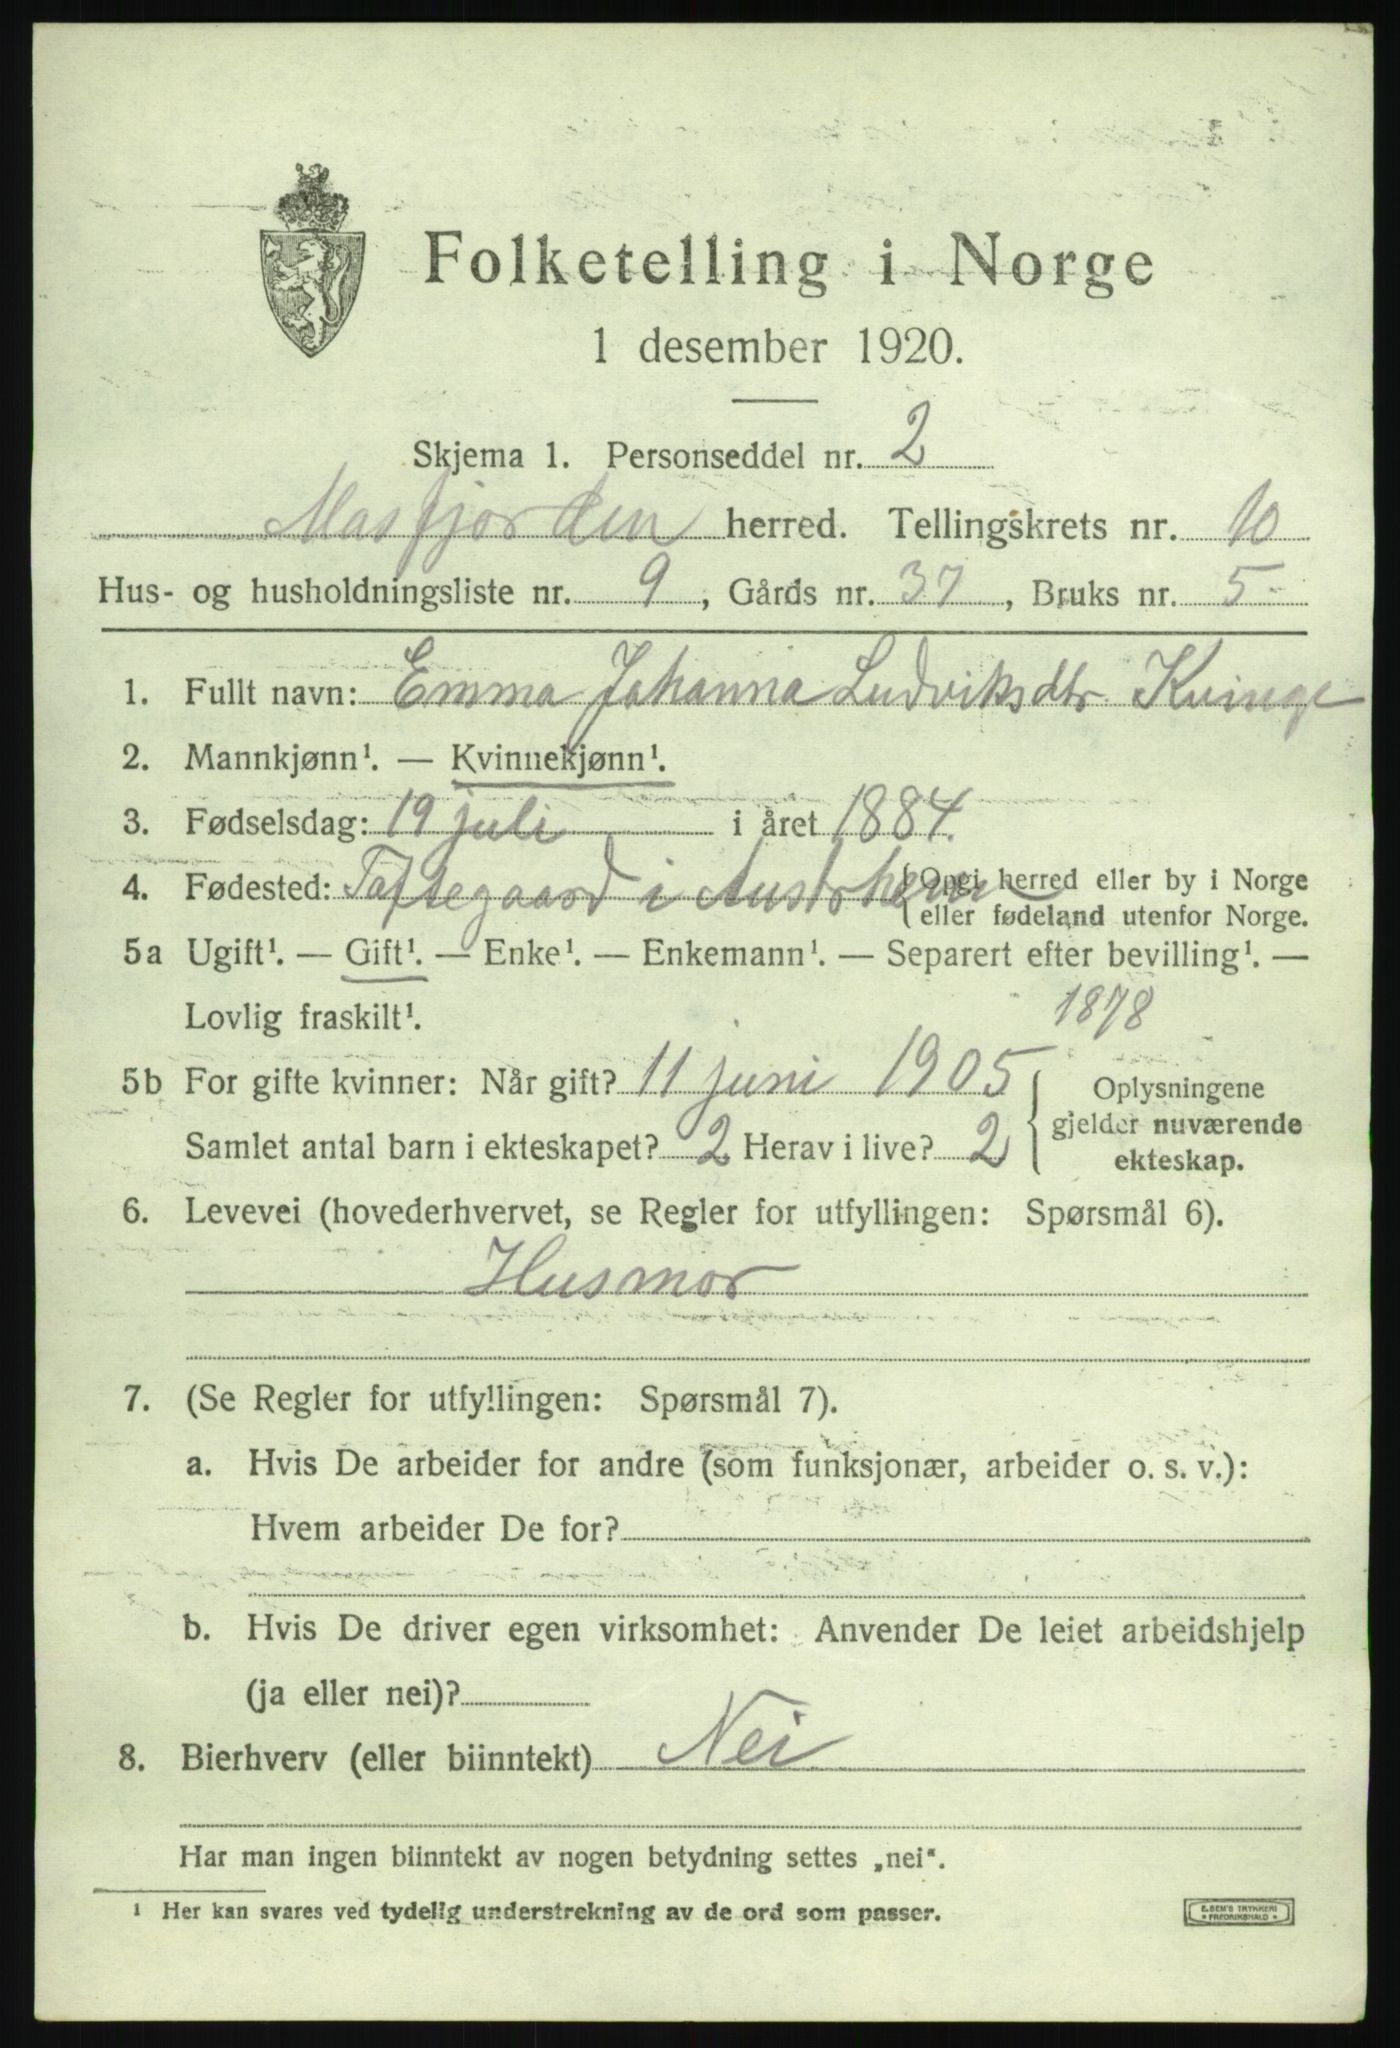 Folketelling i Norge
1 desember 1920.
Skjema 1. Personseddel nr. 2
Masfjorden herred. Tellingskrets nr. 10
Hus- og husholdningsliste nr. 9, Gårds nr. 37, Bruks nr. 5
1. Fullt navn: Emma Johanna Ludviksdtr Kvinge
2. Mannkjønn¹. — Kvinnekjønn¹.
3. Fødselsdag: 19 juli i året 1884.
4. Fødested: Toftegaard i Austrheim { Opgi herred eller by i Norge
eller fødeland utenfor Norge.
5a Ugift¹. — Gift¹. — Enke¹. — Enkemann¹. — Separert efter bevilling¹. —
Lovlig fraskilt¹.
1878
5b For gifte kvinner: Når gift? 11 juni 1905
Samlet antal barn i ekteskapet? 2 Herav i live? 2
{ Oplysningene
gjelder nuværende
ekteskap.
6. Levevei (hovederhvervet, se Regler for utfyllingen: Spørsmål 6).
Husmor
7. (Se Regler for utfyllingen: Spørsmål 7).
a. Hvis De arbeider for andre (som funksjonær, arbeider o. s. v.):
Hvem arbeider De for?
b. Hvis De driver egen virksomhet: Anvender De leiet arbeidshjelp
(ja eller nei)?
8. Bierhverv (eller biinntekt) Nei
Har man ingen biinntekt av nogen betydning settes „nei“.
¹ Her kan svares ved tydelig understrekning av de ord som passer.
E. SEM'S TRYKKERI
• FREDRIKSHALD •